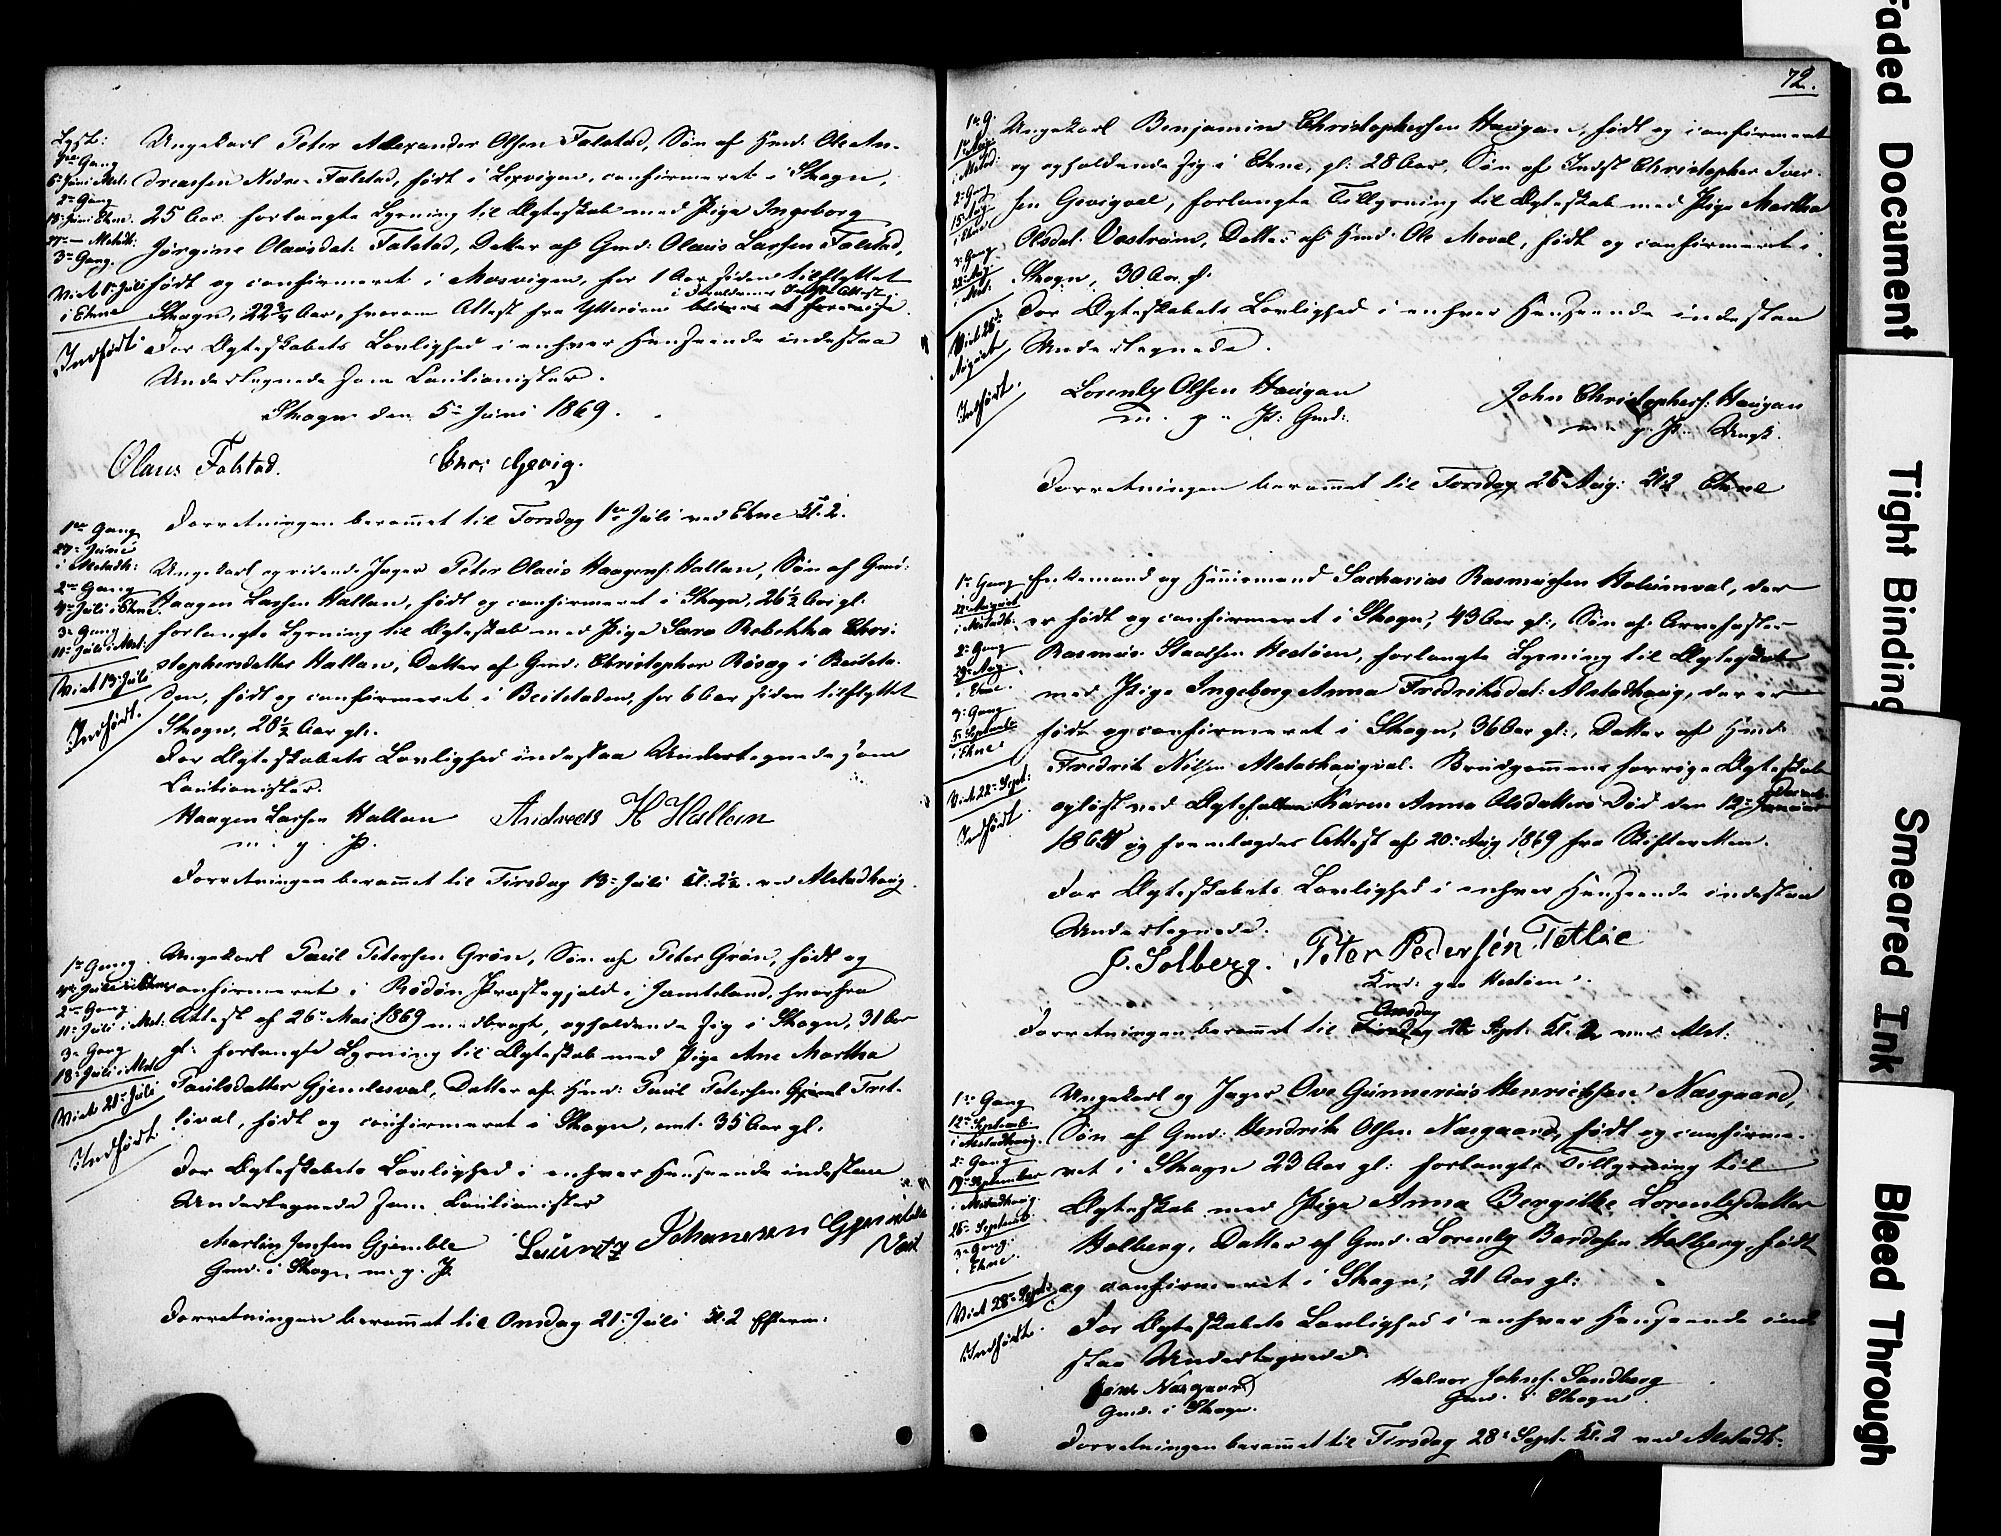 Lyst:
1ste Gang
6te Juni Alst:
2den Gang
13de Juni Ekne
27de — Alstdt:
3die Gang.
Viet 1ste Juli
i Ekne
Indført:
Ungekarl Peter Alexander Olsen Falstad, Søn af Hmd: Ole An-
dreassen Nedre Falstad, født i Lexvigen, confirmeret i Skogn,
25 Aar forlangte Lysning til Ægteskab med Pige Ingeborg
Jørgine Olausdat: Falstad, Datter af Gmd: Olaus Larsen Falstad,
født og confirmeret i Mosvigen, for 1 Aar siden tilflyttet
Skogn, 22 3/4 Aar, hvorom Attest fra Ytterøen
For Ægteskabets Lovlighed i enhver Henseende indestaa
Undertegnede som Cautionister.
Skogn den 5te Juni 1869.
Olaus Falstad.
Forretningen berammet til Torsdag 1ste Juli ved Ekne Kl. 2.
1ste Gang
27de Juni
i Alstadh:
2den Gang
4de Juli i Ekne.
3die Gang
11te Juli i Alst:
Viet 13de Juli
Indført.
Ungekarl og ridende Jæger Peter Olaus Haagens: Hallan, Søn af Gmd:
Haagen Larsen Hallan, født og confirmeret i Skogn, 26 1/2 Aar gl.
forlangte Lysning til Ægteskab med Pige Sara Rebekka Chri-
stophersdatter Hallan, Datter af Gmd: Christopher Røsæg i Beitsta-
den, født og confirmeret i Beitstaden, for 6 Aar siden tilflyttet
Skogn, 28 1/2 Aar gl.
For Ægteskabets Lovlighed indestaa Undertegnede som
Cautionister.
Haagen Larsen Hallan Andreas H Hallan
m. p. P.
Forretningen berammet til Tirsdag 13de Juli Kl: 2 1/2 ved Alstadhoug.
1ste Gang.
4de Juli i Ekne
2den Gang
11te Juli i Alst:
3die Gang
18de Juli i Alst
Viet 21de Juli
Indført.
Ungekarl Paul Petersen Grøn, Søn af Peter Grøn, født og
confirmeret i Rødøn Præstegjeld i Jamteland, hvorfra
Attest af 26de Mai 1869 medbragt, opholdende sig i Skogn, 31 Aar
gl: forlangte Lysning til Ægteskab med Pige Ane Martha
Paulsdatter Gjemlesval, Datter af Hmd: Paul Petersen
født og confirmeret i Skogn, omt. 35 Aar gl.
For Ægteskabets Lovlighed i enhver Henseende indestaa
Undertegnede som Cautionister
Martin Jensen Gjemble Lauritz Johansen
Gmd. i Skogn m. p. P.
Forretningen berammet til Onsdag 21de Juli Kl. 2 Efterm:
72.
1ste g.
1ste Aug:
i Alstad:
2den Gang
15de Aug:
i Ekne
3die Gang
22de Aug:
i Alst:
Viet 26de
August
Indført.
Ungekarl Benjamin Christophersen Haugan, født og confirmeret
og opholdende sig i Ekne, gl: 28 Aar, Søn af Indst Christopher Iver-
sen forlangte Tillysning til Ægteskab med Pige Martha
Olsdat: Vestrum, Datter af Hmd: Ole Moval, født og confirmeret i
Skogn, 30 Aar gl.
For Ægteskabets Lovlighed i enhver Henseende indestaa
Undertegnede.
Lorents Olsen Haugan John Christophers: Haugan
m. p. P: Gmd: m. p. P. Ungk.
Forretningen berammet til Torsdag 26 Aug: Kl 2 Ekne
1ste Gang
22de August
i Alstadh:
2den Gang
29de Aug
i Ekne.
3die Gang
5te Septemb:
i Ekne.
Viet 22de Sept:
Indført.
Enkemand og Huusmand Sacharias Rasmussen Holumval, der
er født og confirmeret i Skogn, 43 Aar gl:, Søn af
Rasmus forlangte Lysning til Ægteskab
med Pige Ingeborg Anna Fredriksdat: Alstadhaug, der er
født og confirmeret i Skogn, 36 Aar gl:, Datter af Hmd:
Fredrik Nilsen Alstadhaugval. Brudgommens forrige Ægteskab
opløst ved Ægtefællen Karen Anna Olsdatters Død den 12te
og fremlagdes Attest af 20de Aug 1869 fra Skifteretten.
For Ægteskabets Lovlighed i enhver Henseende indestaa
Undertegnede.
J. Solberg. Peter Pedersen Tetlie
Forretningen berammet til Onsdag Sept: Kl. 2 ved Alst:
1ste Gang
12te Septemb:
i Alstadhaug.
2den Gang
19de September
i Alstadhaug.
26de Septemb:
3die Gang.
i Ekne.
Viet 28de Sept:
Indført.
Ungekarl og Jæger Ove Gunnerius Henrichsen Nasgaard,
Søn af Gmd: Hendrik Olsen Nasgaard, født og confirme-
ret i Skogn 23 Aar gl: forlangte Tillysning til
Ægteskab med Pige Anna Bergitte Lorentsdatter
Holberg, Datter af Gmd: Lorents Bardosen Holberg, født
og confirmeret i Skogn, 21 Aar gl:
For Ægteskabets Lovlighed i enhver Henseende inde
staa Undertegnede.
Nasgaard Halvor Johns: Sandberg
Gmd. i Skogn. Gmd. i Skogn
Forretningen berammet til Tirsdag 28de Sept. Kl. 2 ved Alstadh:
Faded Document
Tight Binding
Smeared Ink
Bleed Through